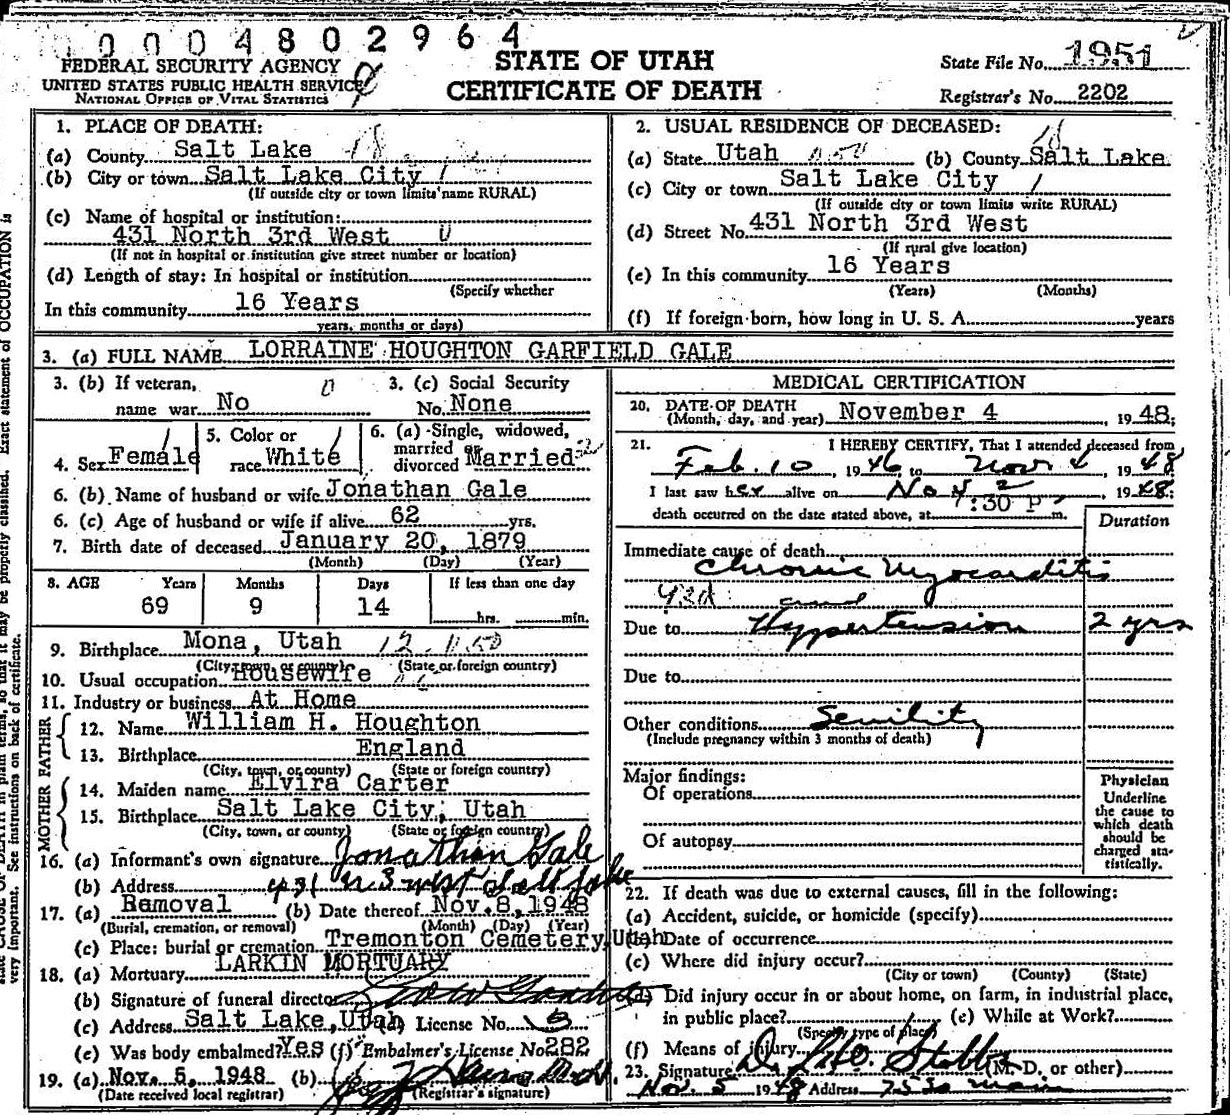 0 0 0 4 8 0 2 9 6 4
FEDERAL SECURITY AGENCY
UNITED STATES PUBLIC HEALTH SERVICE
NATIONAL OFFICE OF VITAL STATISTICS
STATE OF UTAH
CERTIFICATE OF DEATH
State File No. 1951
Registrar's No. 2202
1. PLACE OF DEATH:
(a) County Salt Lake 18
(b) City or town Salt Lake City 1
(If outside city or town limits name RURAL)
(c) Name of hospital or institution:
431 North 3rd West 0
(If not in hospital or institution give street number or location)
(d) Length of stay: In hospital or institution
(Specify whether
In this community 16 Years
years, months or days)
2. USUAL RESIDENCE OF DECEASED:
(a) State Utah (b) County Salt Lake
(c) City or town Salt Lake City 1
(If outside city or town limits write RURAL)
(d) Street No. 431 North 3rd West
(If rural give location)
(e) In this community 16 Years
(Years) (Months)
(f) If foreign-born, how long in U. S. A. years
3. (a) FULL NAME LORRAINE HOUGHTON GARFIELD GALE
3. (b) If veteran, 0
name war No
3. (c) Social Security
No. None
4. Sex Female
5. Color or
race White
6. (a) Single, widowed,
married or
divorced Married
6. (b) Name of husband or wife Jonathan Gale
6. (c) Age of husband or wife if alive 62 yrs.
7. Birth date of deceased January 20, 1879
(Month) (Day) (Year)
8. AGE Years Months Days If less than one day
69 9 14 hrs. min.
9. Birthplace Mona, Utah 12
(City, town, or county) (State or foreign country)
10. Usual occupation Housewife
11. Industry or business At Home
FATHER
12. Name William H. Houghton
13. Birthplace England
(City, town, or county) (State or foreign country)
MOTHER
14. Maiden name Elvira Carter
15. Birthplace Salt Lake City, Utah
(City, town, or county) (State or foreign country)
16. (a) Informant's own signature Jonathan Gale
(b) Address 431 N 3 West Salt Lake
17. (a) Removal (b) Date thereof Nov. 8, 1948
(Burial, cremation, or removal) (Month) (Day) (Year)
(c) Place: burial or cremation Tremonton Cemetery, Utah
18. (a) Mortuary LARKIN MORTUARY
(b) Signature of funeral director
(c) Address Salt Lake, Utah (d) License No.
(e) Was body embalmed? Yes (f) Embalmer's License No. 282
19. (a) Nov. 5, 1948 (b)
(Date received local registrar) (Registrar's signature)
MEDICAL CERTIFICATION
20. DATE OF DEATH
(Month, day, and year) November 4 1948;
21. I HEREBY CERTIFY, That I attended deceased from
Feb. 10, 1946 to Nov 4, 1948
I last saw her alive on Nov 2, 1948;
death occurred on the date stated above, at 7:30 P m.
Duration
Immediate cause of death
Chronic Myocarditis
and
Due to Hypertension 2 yrs
Due to
Other conditions Senility
(Include pregnancy within 3 months of death)
Major findings:
Of operations
Of autopsy
Physician
Underline
the cause to
which death
should be
charged sta-
tistically.
22. If death was due to external causes, fill in the following:
(a) Accident, suicide, or homicide (specify)
(b) Date of occurrence
(c) Where did injury occur?
(City or town) (County) (State)
(d) Did injury occur in or about home, on farm, in industrial place,
in public place? (e) While at Work?
(Specify type of place)
(f) Means of injury
23. Signature (M. D. or other)
Nov. 5 1948 Address